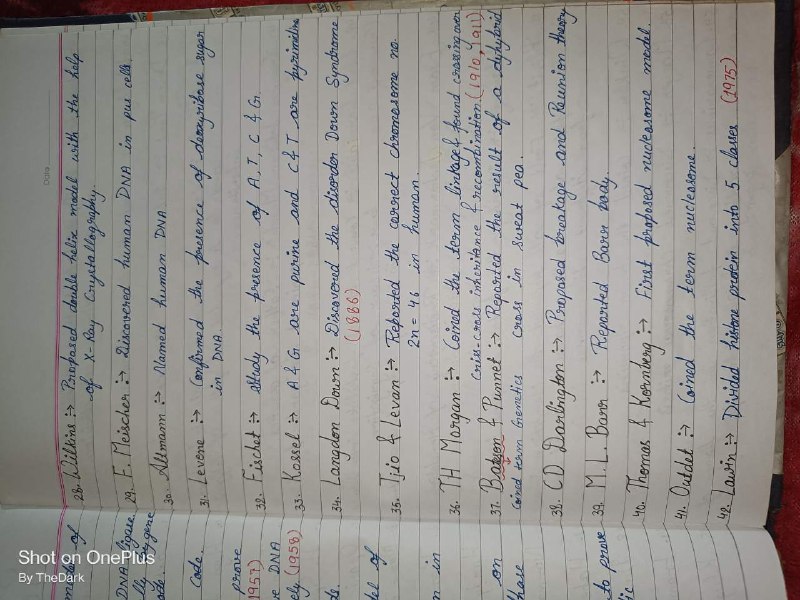 Date
28. Wilkins :→ Proposed double helix model with the help
of X-Ray Crystallography.
29. F. Meischer :→ Discovered human DNA in pus cells
30. Altmann :→ Named human DNA
31. Levene :→ Confirmed the presence of deoxyribose sugar
in DNA.
32. Fischer :→ Study the presence of A, T, C & G.
33. Kossel :→ A & G are purine and C & T are pyrimidine
34. Langdon Down :→ Discovered the disorder Down Syndrome
(1886)
35. Tjio & Levan :→ Reported the correct chromosome no.
2n = 46 in human.
36. TH Morgan :→ Coined the term linkage & found crossing over
criss-cross inheritance & recombination. (1910, 1911)
37. Bateson & Punnet :→ Reported the result of a dyhybrid
Coined term Genetics cross in sweat pea.
38. CD Darlington :→ Proposed breakage and Reunion theory
39. M.L. Barr :→ Reported Barr body.
40. Thomas & Kornberg :→ First proposed nucleosome model.
41. Outdet :→ Coined the term nucleosome.
42. Lawin :→ Divided histone protein into 5 classes (1975)
of
DNA ligase.
gene
Code.
prove
1957)
DNA
ly (1958)
te.
del of
n in
on
hase
to prove
ic
Shot on OnePlus
By TheDark